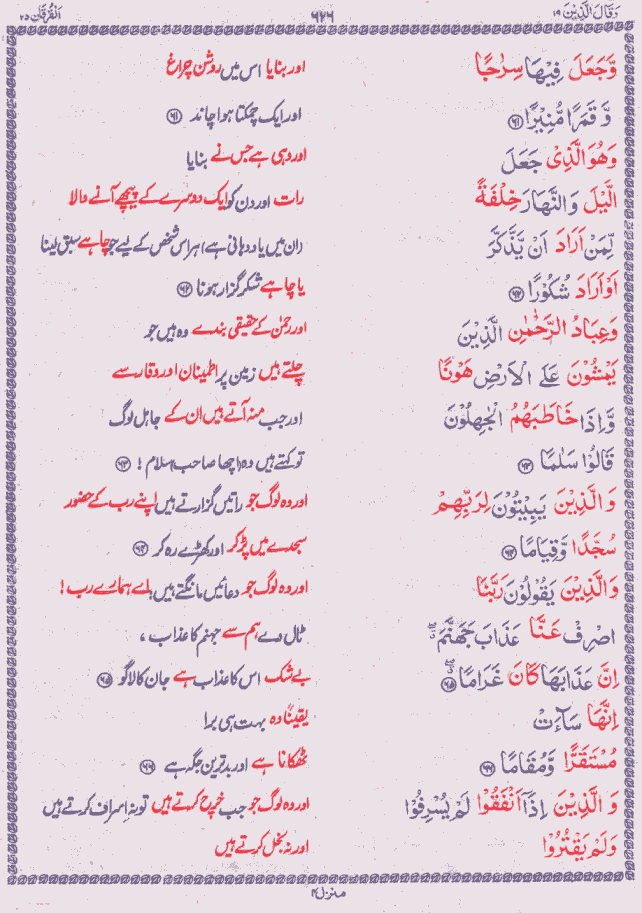 وَقَالَ الَّذِیْنَ ۱۹ ۶۲۶ اَلْفُرْقَان ۲۵
وَّجَعَلَ فِیْهَا سِرٰجًا اور بنایا اس میں روشن چراغ
وَّ قَمَرًا مُّنِیْرًا ﴿۶۱﴾ اور ایک چمکتا ہوا چاند ﴿۶۱﴾
وَهُوَ الَّذِیْ جَعَلَ اور وہی ہے جس نے بنایا
الَّیْلَ وَالنَّهَارَ خِلْفَةً رات اور دن کو ایک دوسرے کے پیچھے آنے والا
لِّمَنْ اَرَادَ اَنْ یَّذَّکَّرَ (ان میں یاد دہانی ہے) ہر اس شخص کے لیے جو چاہے سبق لینا
اَوْ اَرَادَ شُکُوْرًا ﴿۶۲﴾ یا چاہے شکر گزار ہونا ﴿۶۲﴾
وَعِبَادُ الرَّحْمٰنِ الَّذِیْنَ اور رحمٰن کے حقیقی بندے وہ ہیں جو
یَمْشُوْنَ عَلَی الْاَرْضِ هَوْنًا چلتے ہیں زمین پر اطمینان اور وقار سے
وَّاِذَا خَاطَبَهُمُ الْجٰهِلُوْنَ اور جب منہ آتے ہیں ان کے جاہل لوگ
قَالُوْا سَلٰمًا ﴿۶۳﴾ تو کہتے ہیں وہ (اچھا صاحب) سلام ! ﴿۶۳﴾
وَالَّذِیْنَ یَبِیْتُوْنَ لِرَبِّهِمْ اور وہ لوگ جو راتیں گزارتے ہیں اپنے رب کے حضور
سُجَّدًا وَّقِیَامًا ﴿۶۴﴾ سجدے میں پڑ کر اور کھڑے رہ کر ﴿۶۴﴾
وَالَّذِیْنَ یَقُوْلُوْنَ رَبَّنَا اور وہ لوگ جو دعائیں مانگتے ہیں، اے ہمارے رب !
اصْرِفْ عَنَّا عَذَابَ جَهَنَّمَ ٹال دے ہم سے جہنم کا عذاب ،
اِنَّ عَذَابَهَا کَانَ غَرَامًا ﴿۶۵﴾ بے شک اس کا عذاب ہے جان کا لاگو ﴿۶۵﴾
اِنَّهَا سَآءَتْ یقیناً وہ بہت ہی برا
مُسْتَقَرًّا وَّمُقَامًا ﴿۶۶﴾ ٹھکانا ہے اور بدترین جگہ ہے ﴿۶۶﴾
وَ الَّذِیْنَ اِذَاۤ اَنْفَقُوْا لَمْ یُسْرِفُوْا اور وہ لوگ جو جب خرچ کرتے ہیں تو نہ اسراف کرتے ہیں
وَلَمْ یَقْتُرُوْا اور نہ بخل کرتے ہیں
منزل ۴